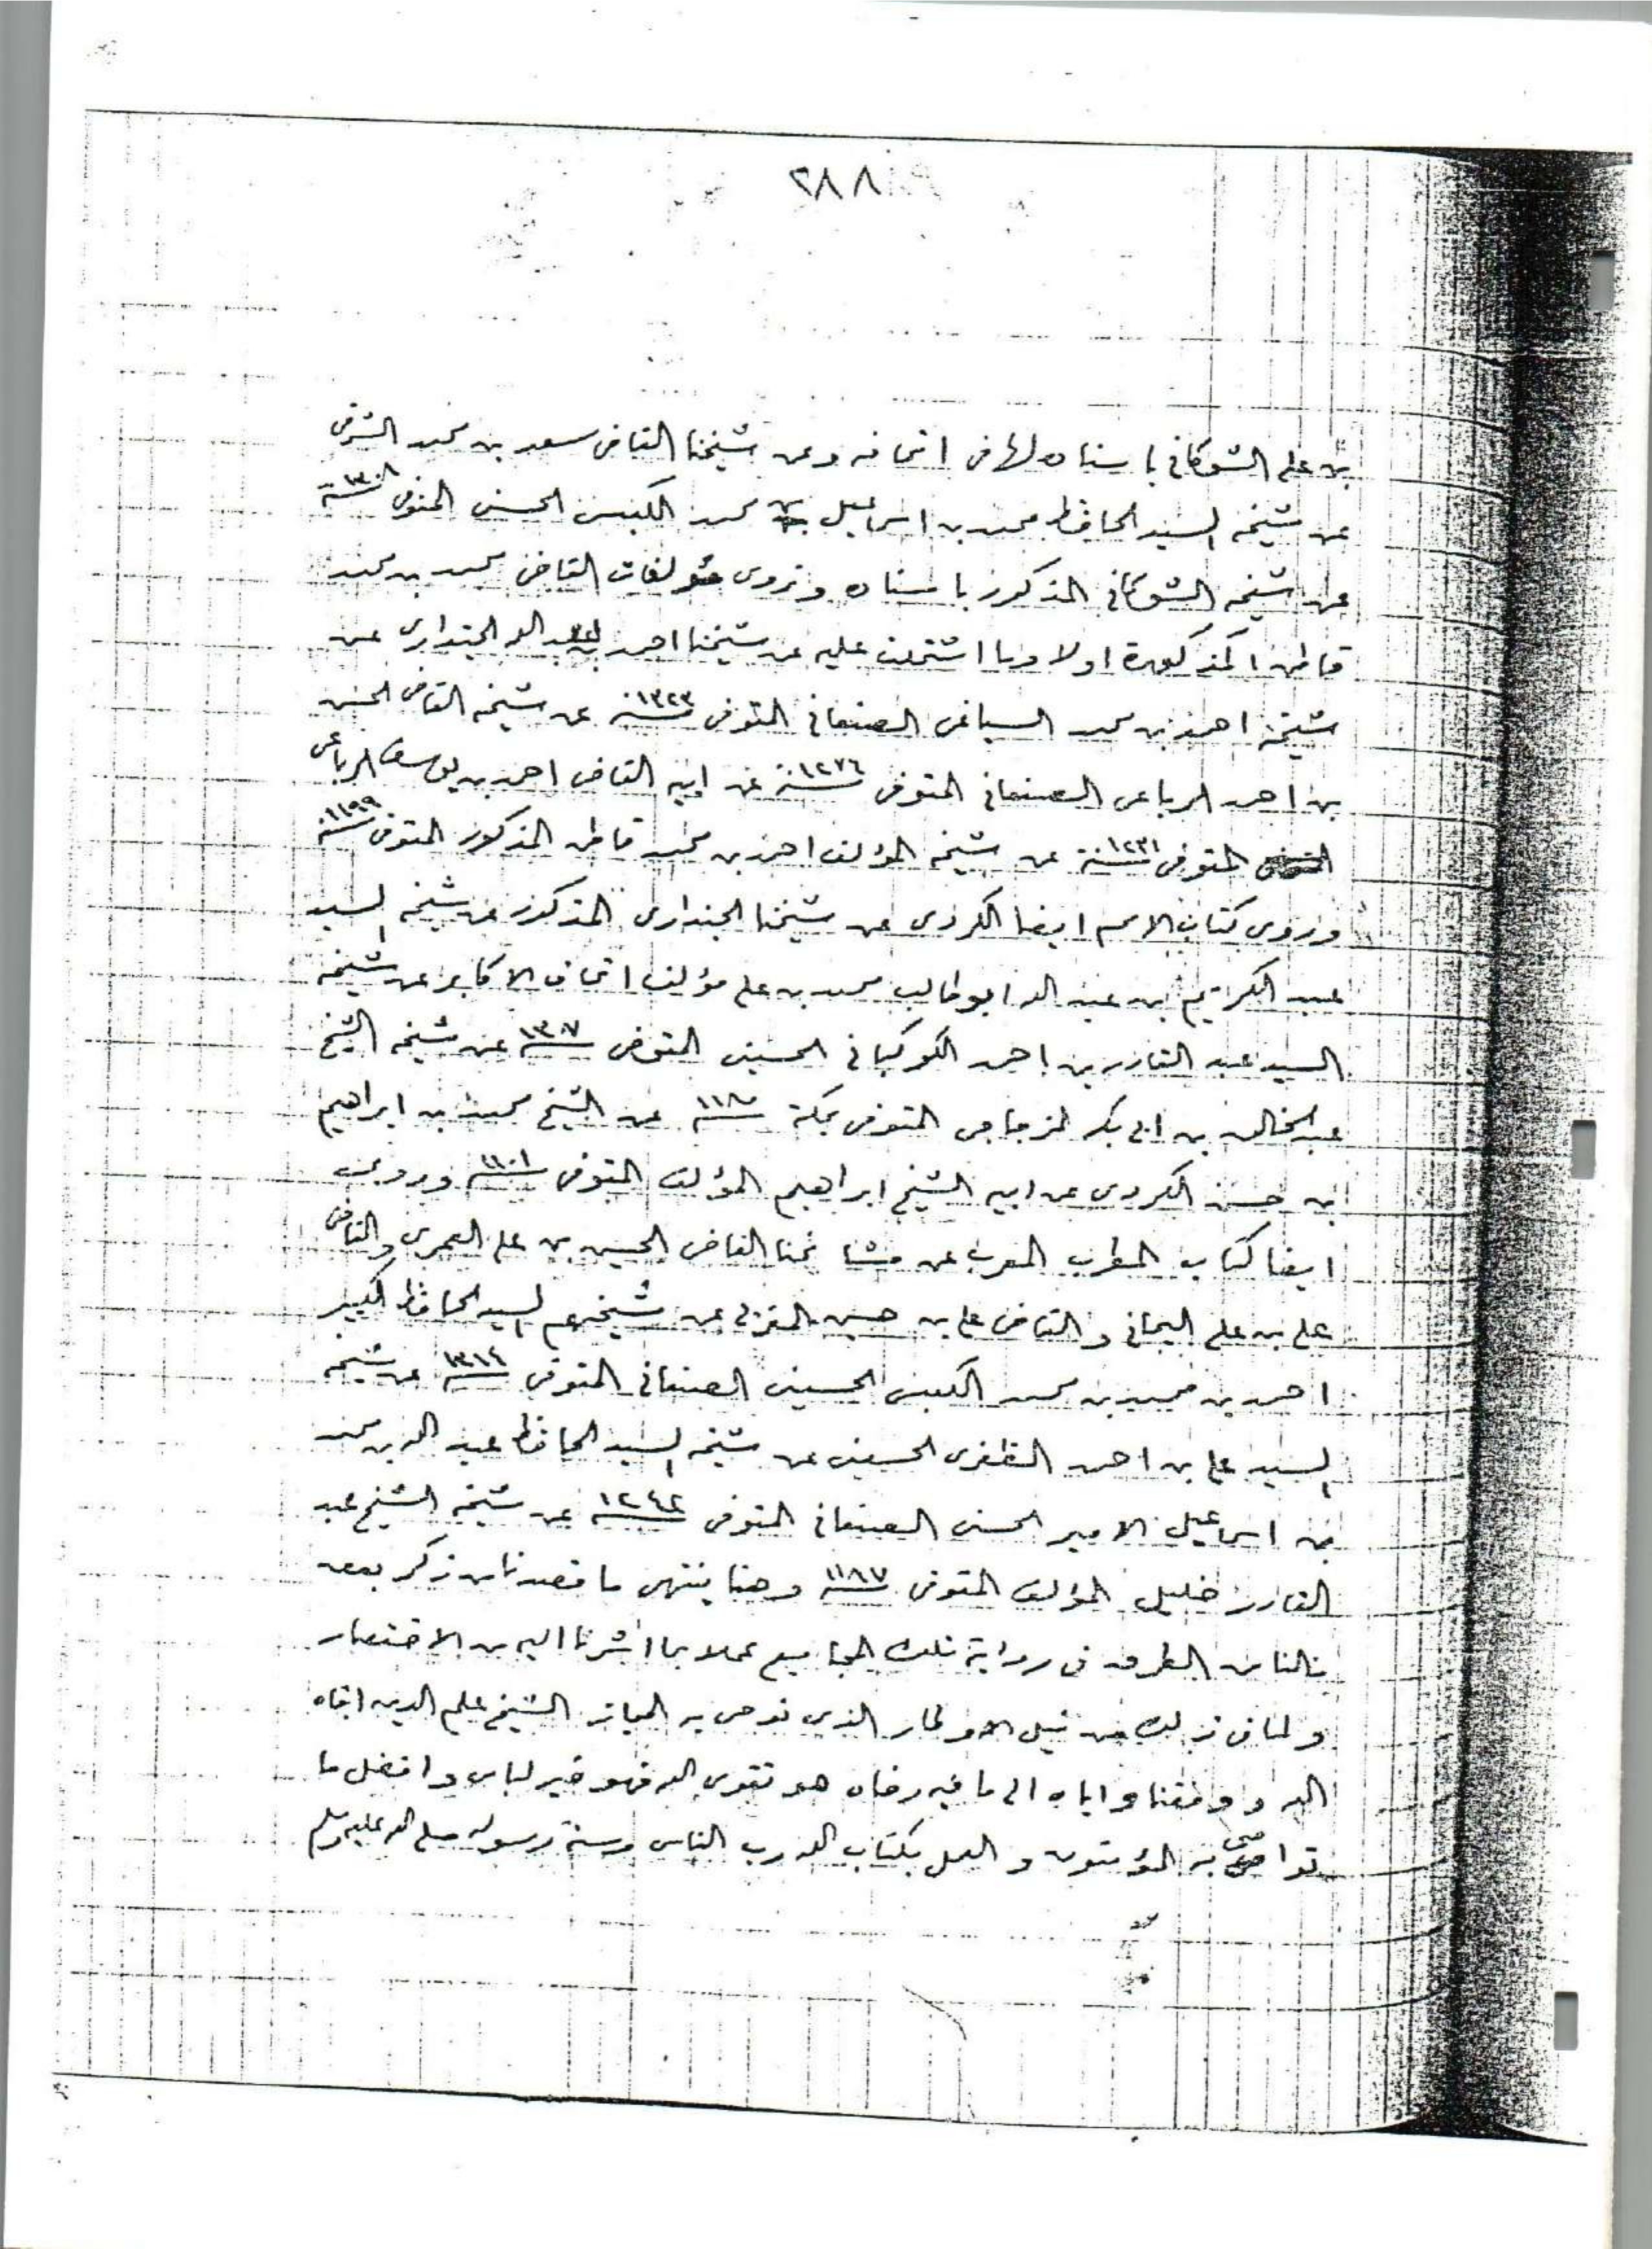 ٢٨٨
بن علي الشوكاني باسناده لها في اتحافه وعن شيخنا القاضي سعد بن محمد الشرفي
عن شيخه السيد الحافظ محمد بن اسماعيل بن محمد الكبسي الحسني المتوفى سنة ١٣٠٨
عن شيخه الشوكاني المذكور باسناده ونروي مؤلفات القاضي محمد بن محمد
قاطن المذكورة اولا وما اشتملت عليه عن شيخنا احمد بن عبد الله الجنداري عن
شيخه احمد بن محمد السياغي الصنعاني المتوفى سنة ١٣٢٣ عن شيخه القاضي الحسن
بن احمد الرباعي الصنعاني المتوفى سنة ١٢٧٦ عن ابيه القاضي احمد بن يوسف الرباعي
المتوفى سنة ١٢٣١ عن شيخه المؤلف احمد بن محمد قاطن المذكور المتوفى سنة ١١٩٩
ونروي كتاب الامم ايضا الكردي عن شيخنا الجنداري المذكور عن شيخه السيد
عبد الكريم بن عبد الله ابو طالب محمد بن علي مؤلف اتحاف الاكابر عن شيخه
السيد عبد القادر بن احمد الكوكباني الحسيني المتوفى ١٣٠٧ عن شيخه الشيخ
عبد الخالق بن ابي بكر المزجاجي المتوفى بمكة سنة ١١٨٠ عن الشيخ محمد بن ابراهيم
ابن حسن الكردي عن ابيه الشيخ ابراهيم المؤلف المتوفى سنة ١١٠١ وروي
ايضا كتاب المطرب المعرب عن مشائخنا القاضي الحسين بن علي العمري والقاضي
علي بن علي اليماني والقاضي علي بن حسين المغربي عن شيخهم السيد الحافظ الكبير
احمد بن محمد بن محمد الكبسي الحسيني الصنعاني المتوفى سنة ١٣١٤ عن شيخه
السيد علي بن احمد الظفري الحسيني عن شيخه السيد الحافظ عبد الله بن محمد
بن اسماعيل الامير الحسني الصنعاني المتوفى سنة ١٢٤٢ عن شيخه الشيخ عبد
القادر خليل المؤلف المتوفى سنة ١١٨٧ وهنا ينتهي ما قصدنا من ذكر بعض
مالنا من الطرق في رواية تلك المجاميع عملا بما اشرنا اليه من الاختصار
ولما في ذلك من نيل الاوطار الذي نوصي به المجاز الشيخ علم الدين ابقاه
الله ووفقنا واياه الى ما فيه رضاه هو تقوى الله فهو خير لباس وافضل ما
تواصى به المؤمنون والعمل بكتاب الله رب الناس وسنة رسوله صلى الله عليه وسلم